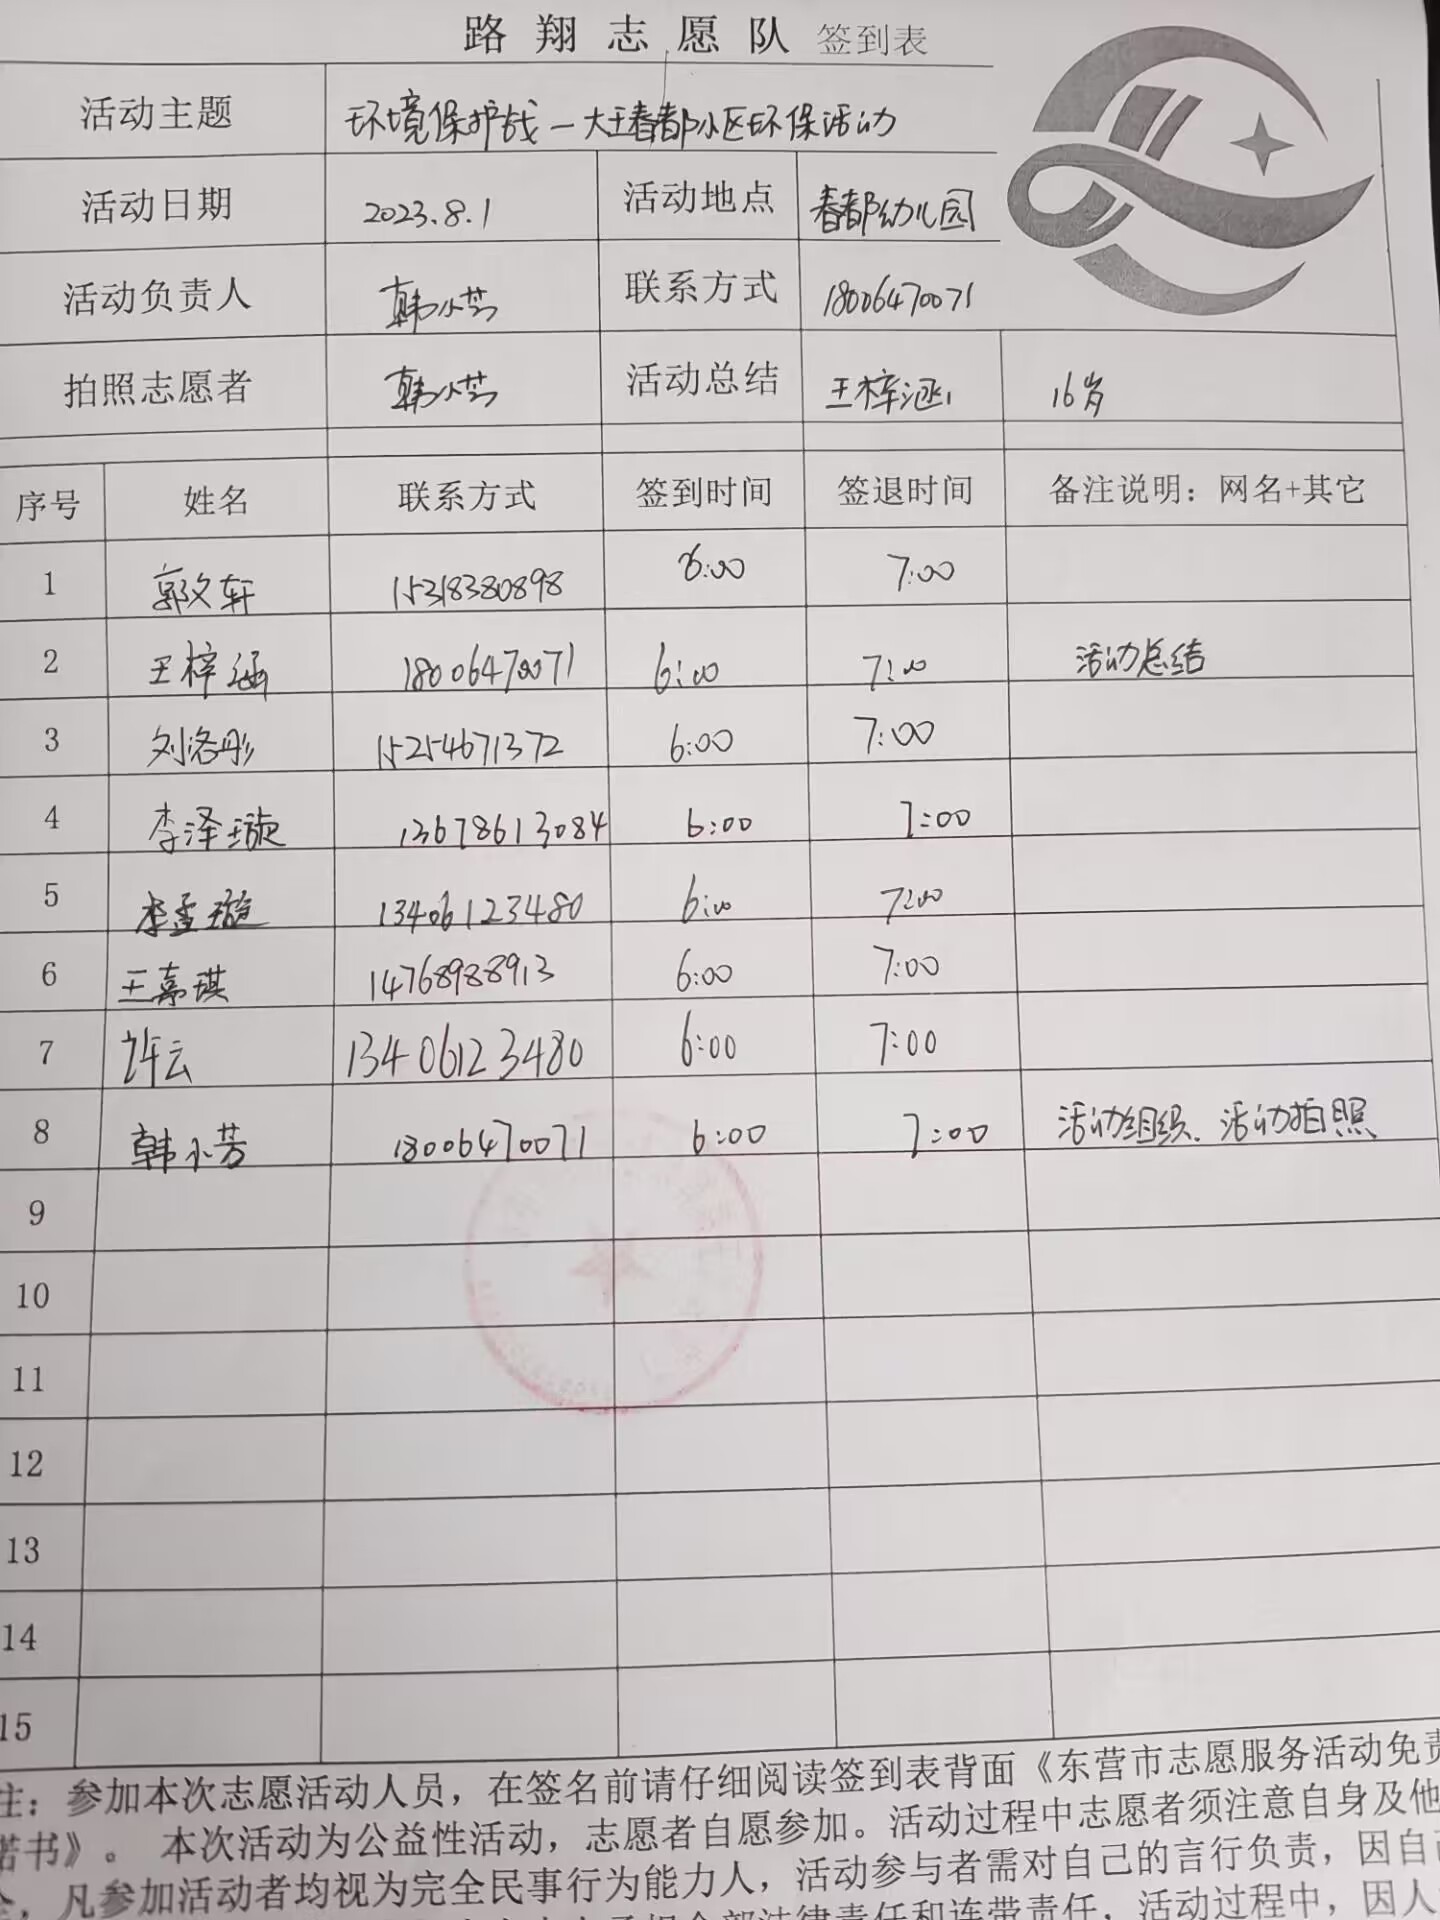 路翔志愿队 签到表
活动主题 环境保护战—大王春都小区环保活动
活动日期 2023.8.1 活动地点 春都幼儿园
活动负责人 韩小芳 联系方式 18006470071
拍照志愿者 韩小芳 活动总结 王梓涵 16岁
序号 姓名 联系方式 签到时间 签退时间 备注说明：网名+其它
1 郭文轩 15318380898 6:00 7:00
2 王梓涵 18006470071 6:00 7:00 活动总结
3 刘洛彤 15254671372 6:00 7:00
4 李泽璇 13678613084 6:00 7:00
5 李孟璇 13406123480 6:00 7:00
6 王嘉琪 14768988913 6:00 7:00
7 许云 13406123480 6:00 7:00
8 韩小芳 18006470071 6:00 7:00 活动组织、活动拍照
9
10
11
12
13
14
15
注：参加本次志愿活动人员，在签名前请仔细阅读签到表背面《东营市志愿服务活动免责
诺书》。 本次活动为公益性活动，志愿者自愿参加。活动过程中志愿者须注意自身及他
全，凡参加活动者均视为完全民事行为能力人，活动参与者需对自己的言行负责，因自己
承担全部法律责任和连带责任，活动过程中，因人